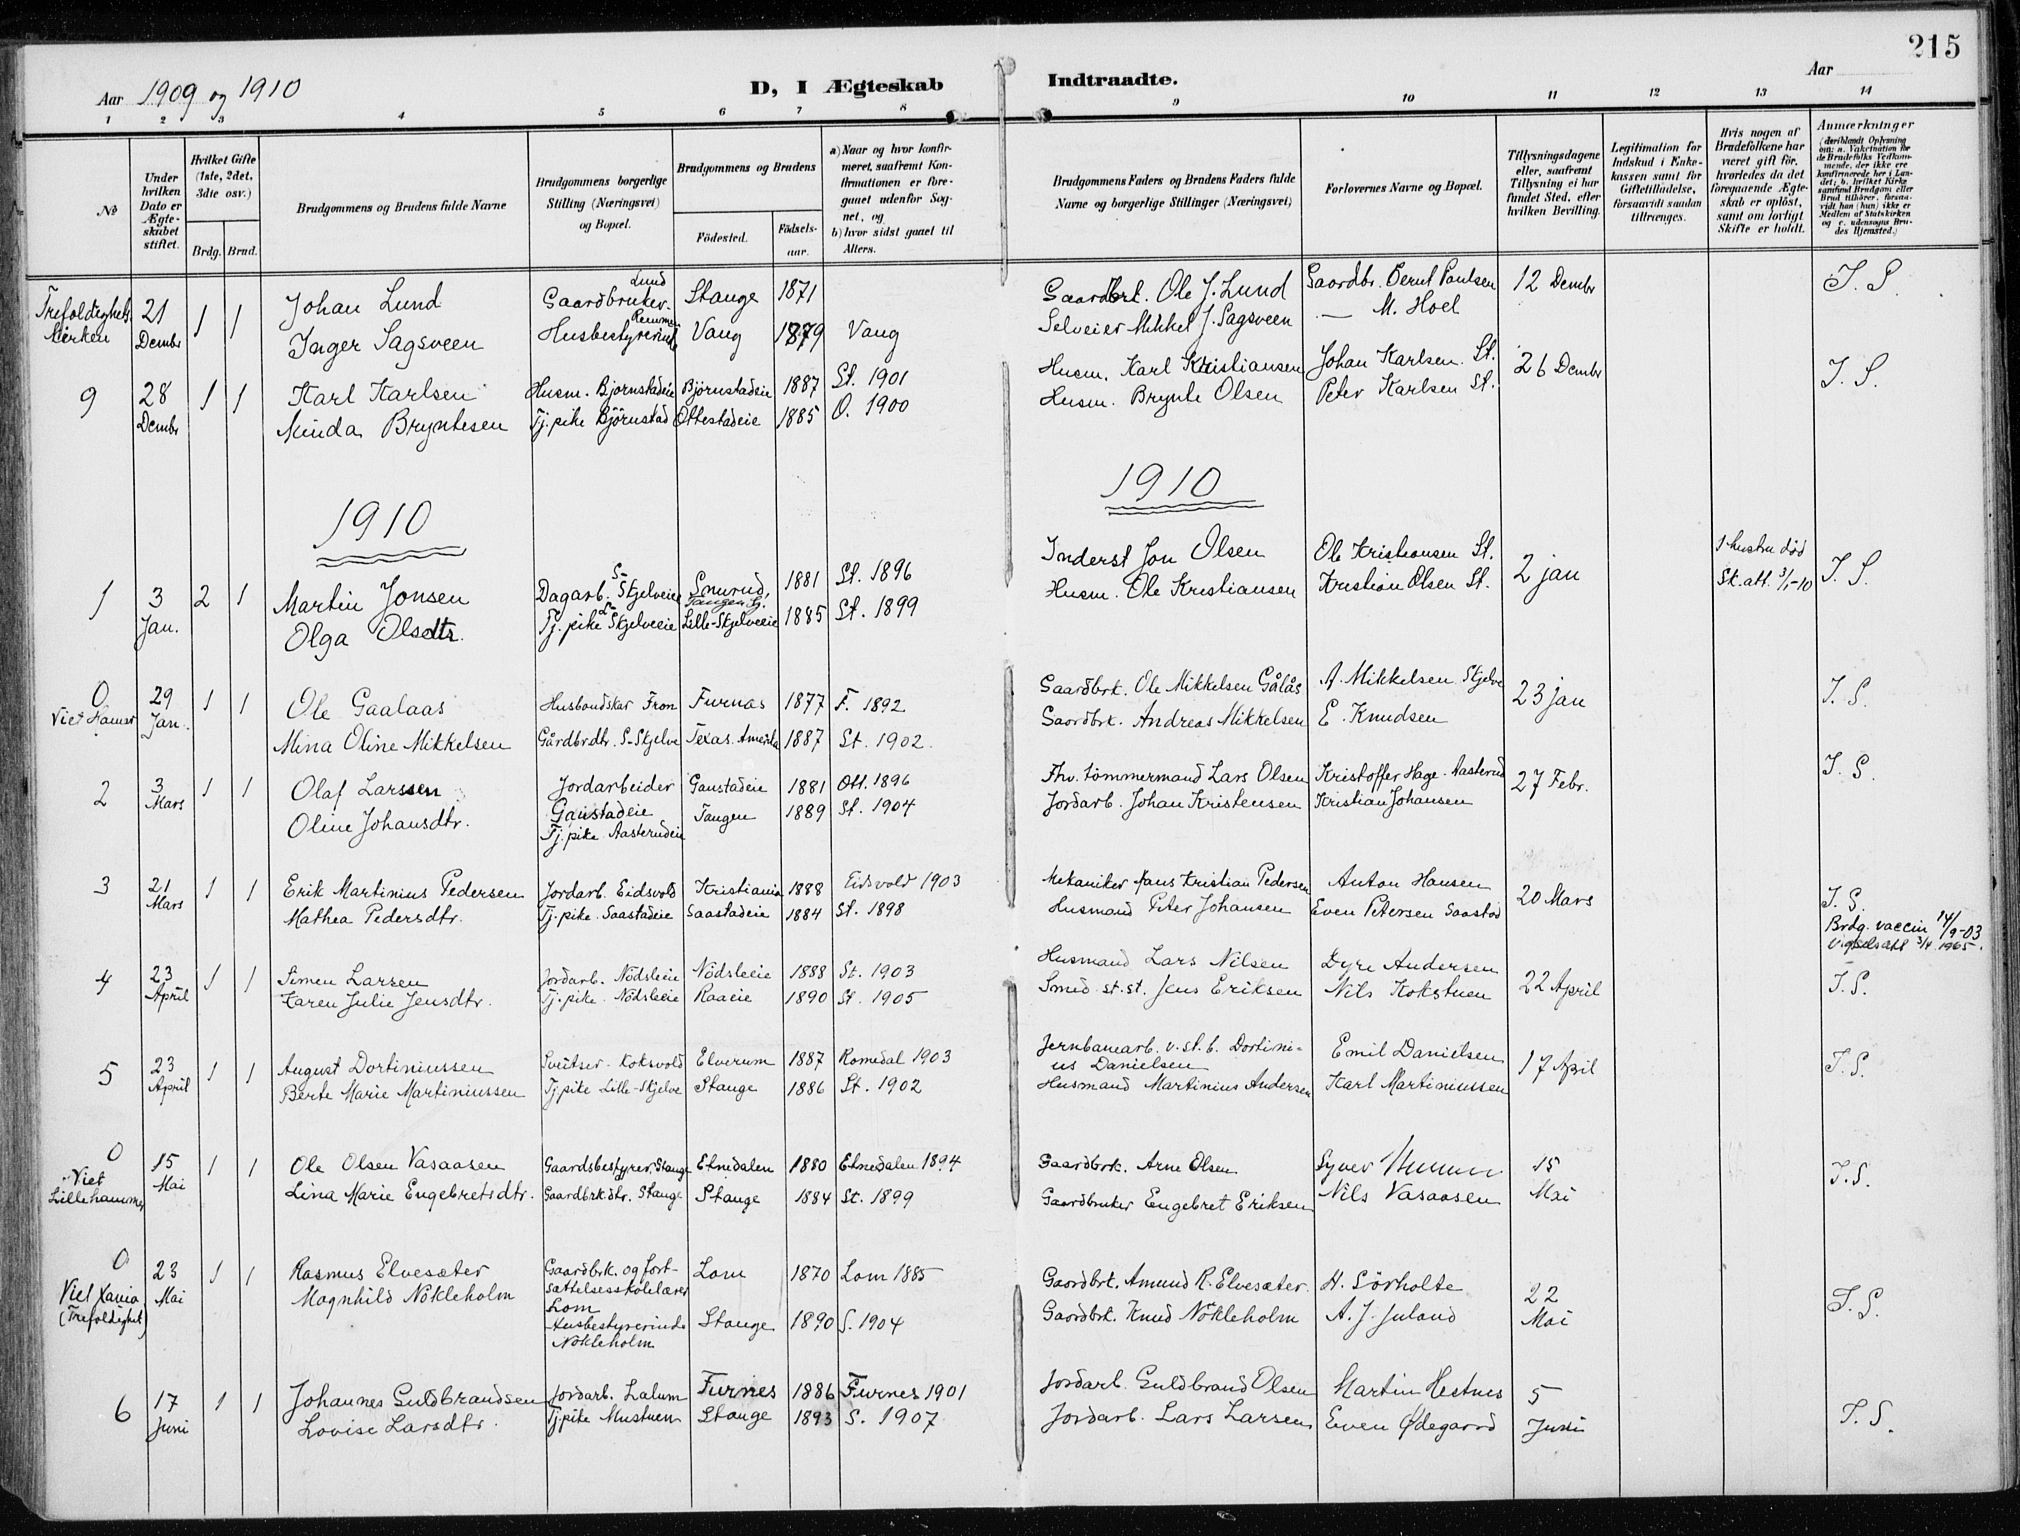 215
Aar 1909 og 1910
D, I Ægteskab Indtraadte.
Aar
1 2 3 4 5 6 7 8 9 10 11 12 13 14
No
Under hvilken Dato er Ægteskabet stiftet.
Hvilket Gifte (1ste, 2det, 3die osv.)
Brdg. Brud.
Brudgommens og Brudens fulde Navne
Brudgommens borgerlige Stilling (Næringsvei) og Bopæl.
Brudgommens og Brudens
Födested. Födselsaar.
a) Naar og hvor konfirmeret, saafremt Konfirmationen er foregaaet udenfor Sognet, og
b) hvor sidst gaaet til Alters.
Brudgommens Faders og Brudens Faders fulde Navne og borgerlige Stillinger (Næringsvei)
Forlovernes Navne og Bopæl.
Tillysningsdagene eller, saafremt Tillysning ei har fundet Sted, efter hvilken Bevilling.
Legitimation for Indskud i Enkekassen samt for Giftetilladelse, forsaavidt saadan tiltrænges.
Hvis nogen af Brudefolkene har været gift för, hvorledes da det foregaaende Ægteskab er oplöst, samt om lovligt Skifte er holdt.
Anmærkninger (deriblandt Oplysning om: a. Vakcination for de Brudefolks Vedkommende, der ikke ere konfirmerede her i Landet; b. hvilket Kirkesamfund Brudgom eller Brud tilhörer, forsaavidt han (hun) ikke er Medlem af Statskirken og c. udensogns Brudes Hjemsted.)
Trefoldigheds kirken 21 Dembr 1 1 Johan Lund Gaardbruker Lund Stange 1871 Gaardbrk. Ole J. Lund Gaardbr. Bernt Paulsen 12 Dembr T. S.
Inger Sagsveen Husbestyrerinde Vang 1879 Vang Selveier Mikkel J. Sagsveen — M. Hoel
9 28 Dembr 1 1 Karl Karlsen Husm. Bjørnstadeie Björnstadeie 1887 St. 1901 Husm. Karl Kristiansen Johan Karlsen St. 26 Dembr T. S.
Minda Bryntesen Tj. pike Björnstad Ottestadeie 1885 O. 1900 Husm. Brynte Olsen Peter Karlsen St.
1910 1910
1 3 Jan. 2 1 Martin Jonsen Dagarb. S-Skjelveeie Smurud, Tangen S. 1881 St. 1896 Inderst Jon Olsen Ole Kristiansen St. 2 jan 1 hustru död Sk. att. 3/1-10 T. S.
Olga Olsdtr. Tj. pike L-Skjelveeie Lille-Skjelveeie 1885 St. 1899 Husm. Ole Kristiansen Kristian Olsen St.
0 Viet Hamar 29 Jan. 1 1 Ole Gaalaas Husbondskar Fron Furnas 1877 F. 1892 Gaardbrk. Ole Mikkelsen Gålås A. Mikkelsen Skjelve 23 jan T. S.
Mina Oline Mikkelsen Gårdbrdtr. S-Skjelve Texas. Amerika 1887 St. 1902. Gaardbrk. Andreas Mikkelsen E. Knudsen
2 3 Mars 1 1 Olaf Larssen Jordarbeider Gaustadeie Gaustadeie 1881 Ott. 1896 Fhv. tömmermand Lars Olsen Kristoffer Hage. Aasterud 27 Febr. T. S.
Oline Johansdtr. Tj. pike Aasterudeie Tangen 1889 St. 1904 Jordarb. Johan Kristensen Kristian Johansen
3 21 Mars 1 1 Erik Martinius Pedersen Jordarb. Eidsvold Kristiania 1888 Eidsvold 1903 Mekaniker Hans Kristian Pedersen Anton Hansen 20 Mars T. S.
Mathea Pedersdtr. Tj. pike Saastadeie Saastadeie 1884 St. 1898 Husmand Peter Johansen Even Petersen Saastad Brdg. vaccin 14/9-03 Vigselsatt 3/4 1965.
4 23 April 1 1 Simen Larsen Jordarb. Nödsleie Nödsleie 1888 St. 1903 Husmand Lars Nilsen Dyre Andersen 22 April T. S.
Karen Julie Jensdtr. Tj. pike Nödsleie Raaeie 1890 St. 1905 Smed st. st. Jens Eriksen Nils Kokstuen
5 23 April 1 1 August Dortiniussen Sveitser Koksvold Elverum 1887 Romedal 1903 Jernbanearb. v. st. b. Dortinius Danielsen Emil Danielsen 17 April T. S.
Berte Marie Martiniussen Tj. pike Lille-Skjelve Stange 1886 St. 1902 Husmand Martinius Andersen Karl Martiniussen
0 Viet Lillehammer 15 Mai 1 1 Ole Olsen Vasaasen Gaardsbestyrer. Stange Etnedalen 1880 Etnedalen 1894 Gaardbrk. Arne Olsen Syver 15 Mai T. S.
Lina Marie Engebretsdtr. Gaardbrk.dtr. Stange Stange 1884 St. 1899 Gaardbruker Engebret Eriksen Nils Vasaasen
0 Viet Xania (Trefoldighet) 23 Mai 1 1 Rasmus Elvesæter Gaardbrk. og fortsættelsesskolelærer Lom Lom 1870 Lom 1885 Gaardbrk. Amund R. Elvesæter H. Sörholte 22 Mai T. S.
Magnhild Nökleholm Husbestyrerinde Nökleholm Stange 1890 S. 1904 Gaardbrk. Knud Nökleholm A. J. Juland
6 17 Juni 1 1 Johannes Guldbrandsen Jordarb. Lalum Furnes 1886 Furnes 1901 Jordarb. Guldbrand Olsen Martin Hestnes 5 Juni T. S.
Lovise Larsdtr. Tj. pike Mustuen Stange 1893 S. 1907 Jordarb. Lars Larsen Even Ødegaard